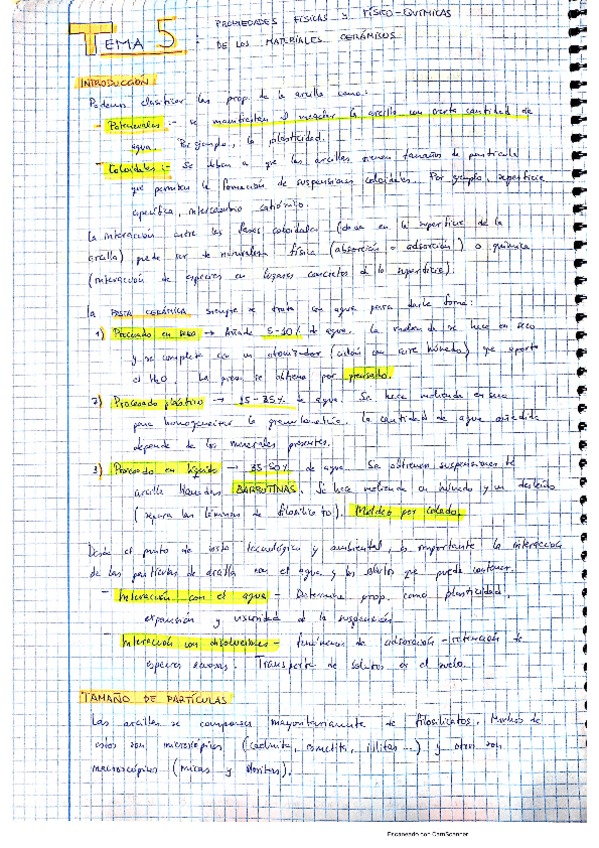 PROPIEDADES FÍSICAS Y FÍSICO-QUÍMICAS
TEMA 5: DE LOS MATERIALES CERÁMICOS
INTRODUCCIÓN
Podemos clasificar las prop. de la arcilla como:
- Potenciales:- se manifiestan al mezclar la arcilla con cierta cantidad de
agua. Por ejemplo, la plasticidad.
- Coloidales:- Se deben a que las arcillas tienen tamaños de partícula
que permiten la formación de suspensiones coloidales. Por ejemplo, superficie
específica, intercambio catiónico.
La interacción entre las fases coloidales (agua en la superficie de la
arcilla) puede ser de naturaleza física (absorción o adsorción) o química
(interacción de especies en lugares concretos de la superficie).
La PASTA CERÁMICA siempre se trata con agua para darle forma:
1) Procesado en seco → Añade 5-10% de agua. La molienda se hace en seco
y se completa con un atomizador (ciclón con aire húmedo) que aporta
el H2O. La pieza se obtiene por prensado.
2) Procesado plástico → 15-25% de agua. Se hace molienda en seco
para homogeneizar la granulometría. La cantidad de agua añadida
depende de los minerales presentes.
3) Procesado en líquido → 35-50% de agua. Se obtienen suspensiones de
arcilla llamadas BARBOTINAS. Se hace molienda en húmedo y un desleído
(separa las láminas de filosilicato). Moldeo por colado.
Desde el punto de vista tecnológico y ambiental, es importante la interacción
de las partículas de arcilla con el agua y los solutos que puede contener.
- Interacción con el agua - Determina prop. como plasticidad,
expansión y viscosidad de la suspensión
- Interacción con disoluciones - fenómenos de adsorción-retención de
especies Transporte de solutos en el suelo.
TAMAÑO DE PARTÍCULAS
Las arcillas se componen mayoritariamente de filosilicatos. Muchos de
estos son microscópicos (caolinita, esmectita, illitas...) y otros son
macroscópicos (micas y cloritas).
Escaneado con CamScanner